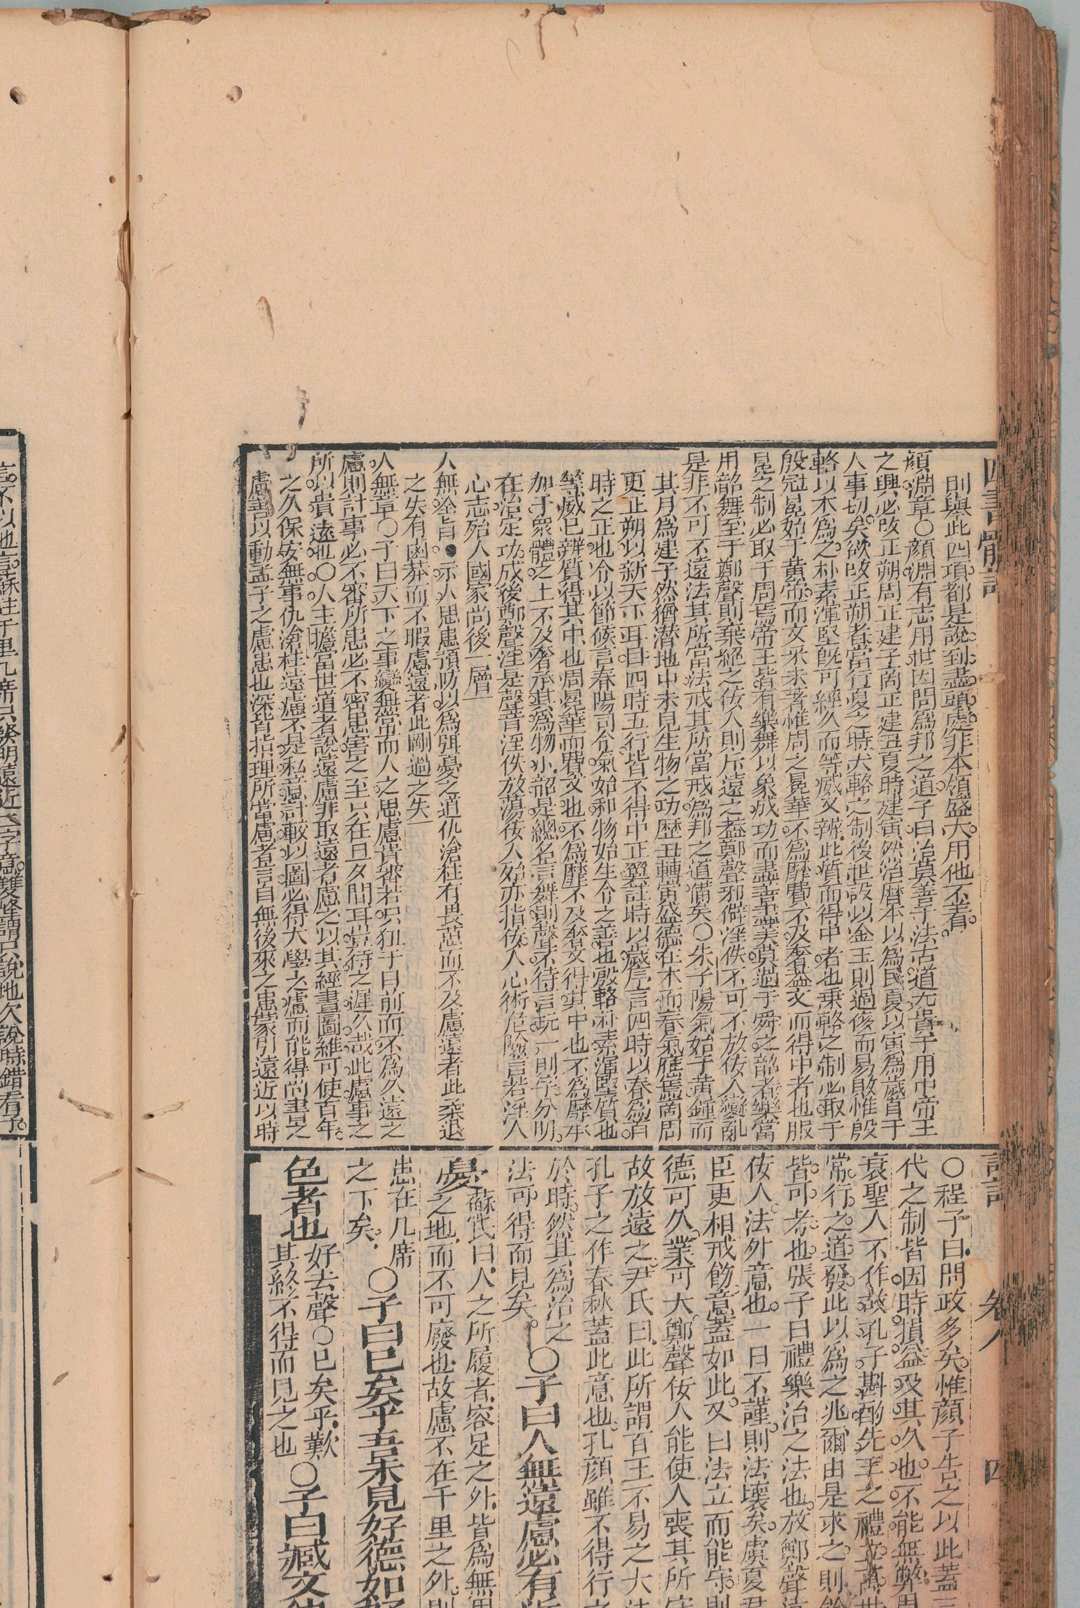 則與此四項都是說到盡頭處非本領盛大用他不著
顏淵章○顏淵有志用世因問為邦之道子曰治莫善于法古道尤貴于用中帝王
之興必改正朔周正建子商正建丑夏時建寅然治曆本以為民夏以寅為歲首于
人事切矣欲改正朔者當行夏之時大輅之制後世或以金玉則過侈而易敗惟殷
輅以木為之朴素渾堅既可經久而等威又辨此質而得中者也乘輅之制必取于
殷冠冕始于黃帝而文采未著惟周之冕華不為靡費不及奢益文而得中者也服
冕之制必取于周焉帝王皆有樂舞以象成功而盡善盡美莫過于舜之韶者樂當
用韶舞至于鄭聲則棄絕之佞人則斥遠之蓋鄭聲邪僻淫佚不可不放佞人變亂
是非不可不遠法其所當法戒其所當戒為邦之道備矣○朱子陽氣始于黃鐘而
其月為建子然猶潛地中未見生物之功歷丑轉寅
更正朔以新天下耳目四時五行皆不得中正
時之正也令以節候言春陽司令氣如和物始生令之善也殷輅朴素渾堅質也
等威已辨質得其中也周冕華而費文也不為靡不及奢文得其中也不為靡本
加于眾體之上不及奢
在治定功成後鄭聲淫是聲音淫佚放蕩佞人殆亦指佞人心術危險言若淫人
心志殆人國家尚後一層
人無全旨●示人思患預防以為弭憂之道仇滄柱有畏葸而不及慮遠者此柔退
之失有鹵莽而不暇慮遠者此剛過之失
人無章○子曰天下之事變無常而人之思慮貴審若只狃于目前而不為久遠之
慮則計事必不審所患必不密患害之至只在旦夕間耳豈待之遲久哉此慮事之
所以貴遠也○人主擔當世道者說遠慮非取遠者慮之以其經畫圖維可使百年
之久保安無事仇滄柱遠慮不是私意計較
慮善以動孟子之慮患也深皆指理所當慮者言自無後來之患蒙引遠近以時
○程子曰問政多矣惟顏子告之以此蓋三
代之制皆因時損益及其久也不能無弊周
衰聖人不作故孔子斟酌先王之禮立萬世
常行之道發此以為之兆爾由是求之則餘
皆可考也張子曰禮樂治之法也放鄭聲遠
佞人法外意也一日不謹則法壞矣虞夏君
臣更相戒飭意蓋如此又曰法立而能守則
德可久業可大鄭聲佞人能使人喪其所守
故放遠之尹氏曰此所謂百王不易之大法
孔子之作春秋蓋此意也孔顏雖不得行之
於時然其為治之
法可得而見矣○子曰人無遠慮必有近
憂蘇氏曰人之所履者容足之外皆為無用
之地而不可廢也故慮不在千里之外則
患在几席
之下矣○子曰已矣乎吾未見好德如好
色者也好去聲○已矣乎歎
其終不得而見之也○子曰臧文仲
四書體註
卷八
四
言不以地言蘇註千里几席只發明遠近二字意雙峰謂只說地欠說時錯看了